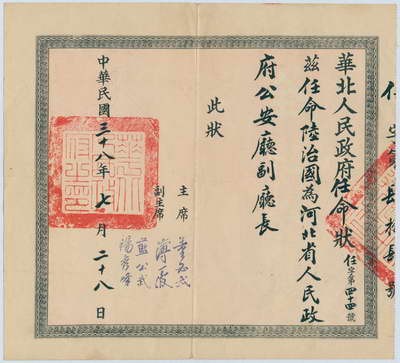 華北人民政府任命狀 任字第四十四號
茲任命陸治國為河北省人民政
府公安廳副廳長
此狀
主席 董必武
副主席 薄一波
藍公武
楊秀峰
中華民國三十八年七月二十八日